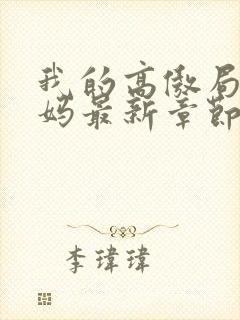 我的高傲局
妈最新章节
李瑋瑋